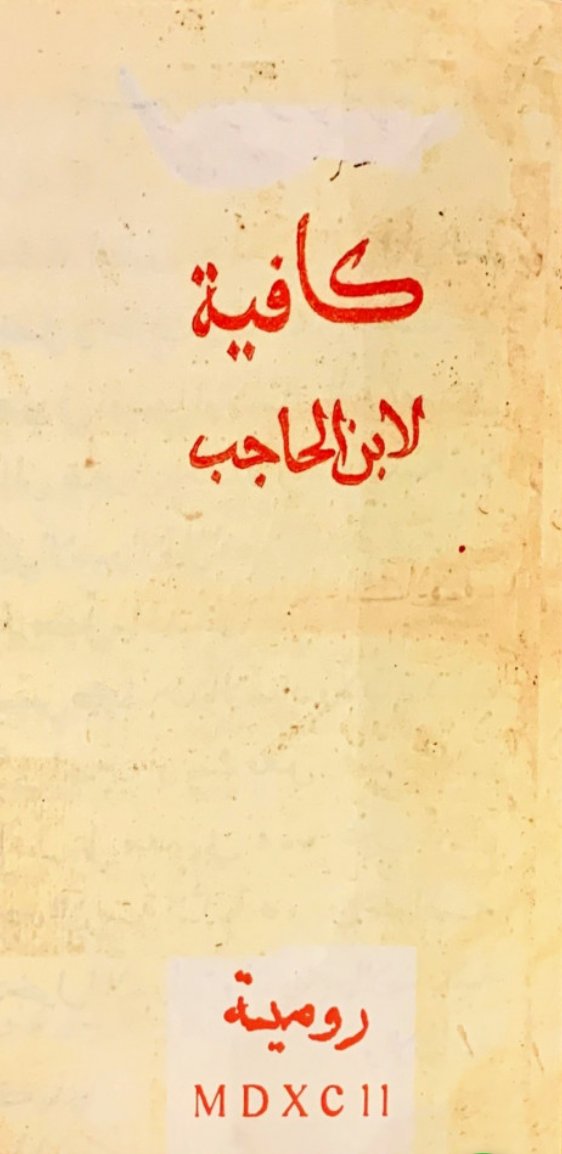 كافية
لابن الحاجب
رومية
MDXCII